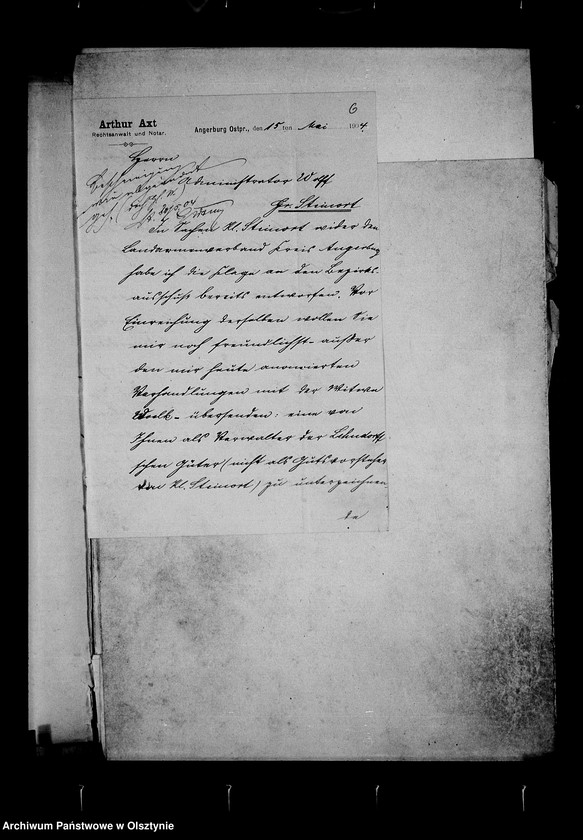 6
Arthur Axt
Rechtsanwalt und Notar.
Angerburg Ostpr., den 15 ten Mai 1904.
Herrn
Administrator Wolff
Gr. Steinort
Bescheinigung
abgesandt
20/5. 04
In Sachen Kl. Steinort wider den
Landarmenverband Kreis Angerburg
habe ich die Klage an den Bezirks-
ausschuß bereits entworfen. Vor
Einreichung derselben wollen Sie
mir noch freundlichst - außer
den mir heute avisierten
Verhandlungen mit der Witwe
- übersenden: eine von
Ihnen als Verwalter der Lehndorff-
schen Güter (nicht als Gutsvorsteher
von Kl. Steinort) zu unterzeichnen
de
Archiwum Państwowe w Olsztynie